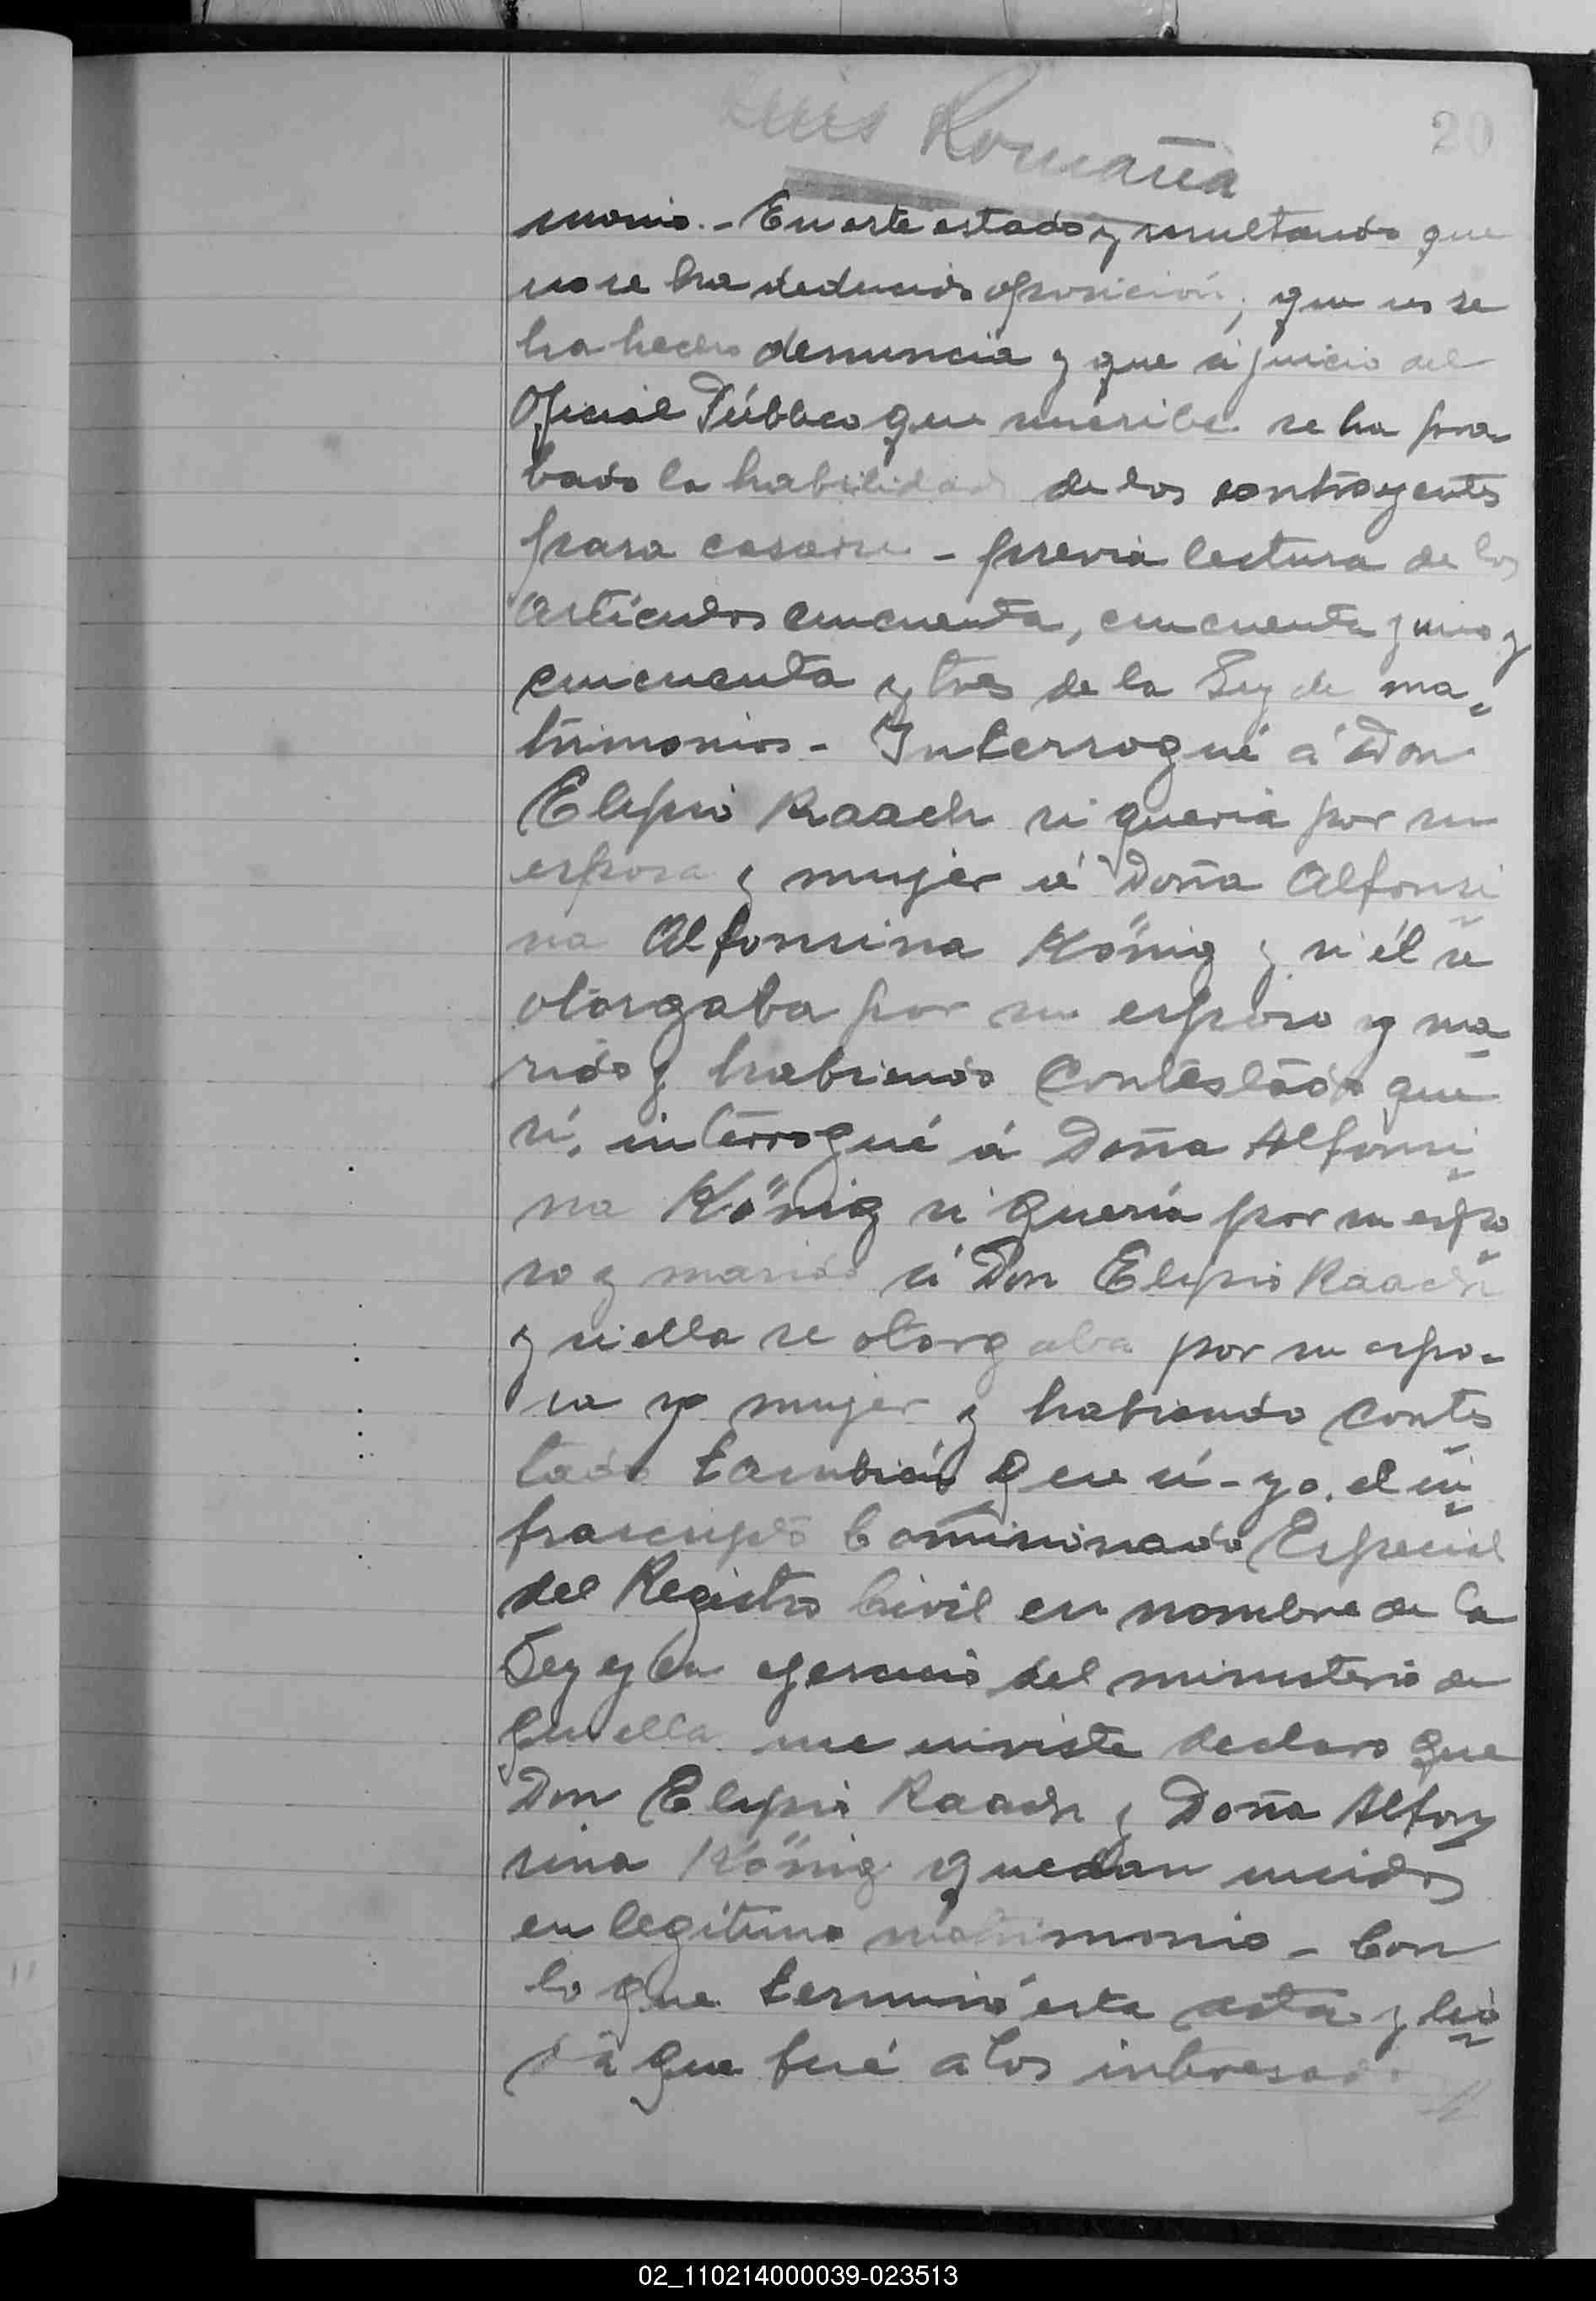 Luis Romaña
20
monio.- En este estado y resultando que
no se ha deducido oposición, que no se
ha hecho denuncia y que á juicio del
Oficial Público que suscribe se ha pro-
bado la habilidad de los contrayentes
para casarse - previa lectura de los
articulos cincuenta, cincuenta y uno y
cincuenta y tres de la Ley de ma-
trimonios - Interrogué á Don
Elipio Raach si queria por su
esposa y mujer á Doña Alfonsi
na Alfonsina König y si él se
otorgaba por su esposo y ma
rido y habiendo contestado que
si, interrogué á Doña Alfonsi
na König si quería por su espo
so y marido á Don Elipio Raach
y si ella se otorgaba por su espo-
sa y mujer y habiendo contes
tado también que sí - yo, el in
frascripto Comisionado Especial
del Registro Civil en nombre de la
Ley y en ejercicio del ministerio de
que ella me inviste declaro que
Don Elipio Raach y Doña Alfon
sina König quedan unidos
en legítimo matrimonio - Con
lo que terminó esta acta y leí
da que fué a los interesados
02_110214000039-023513